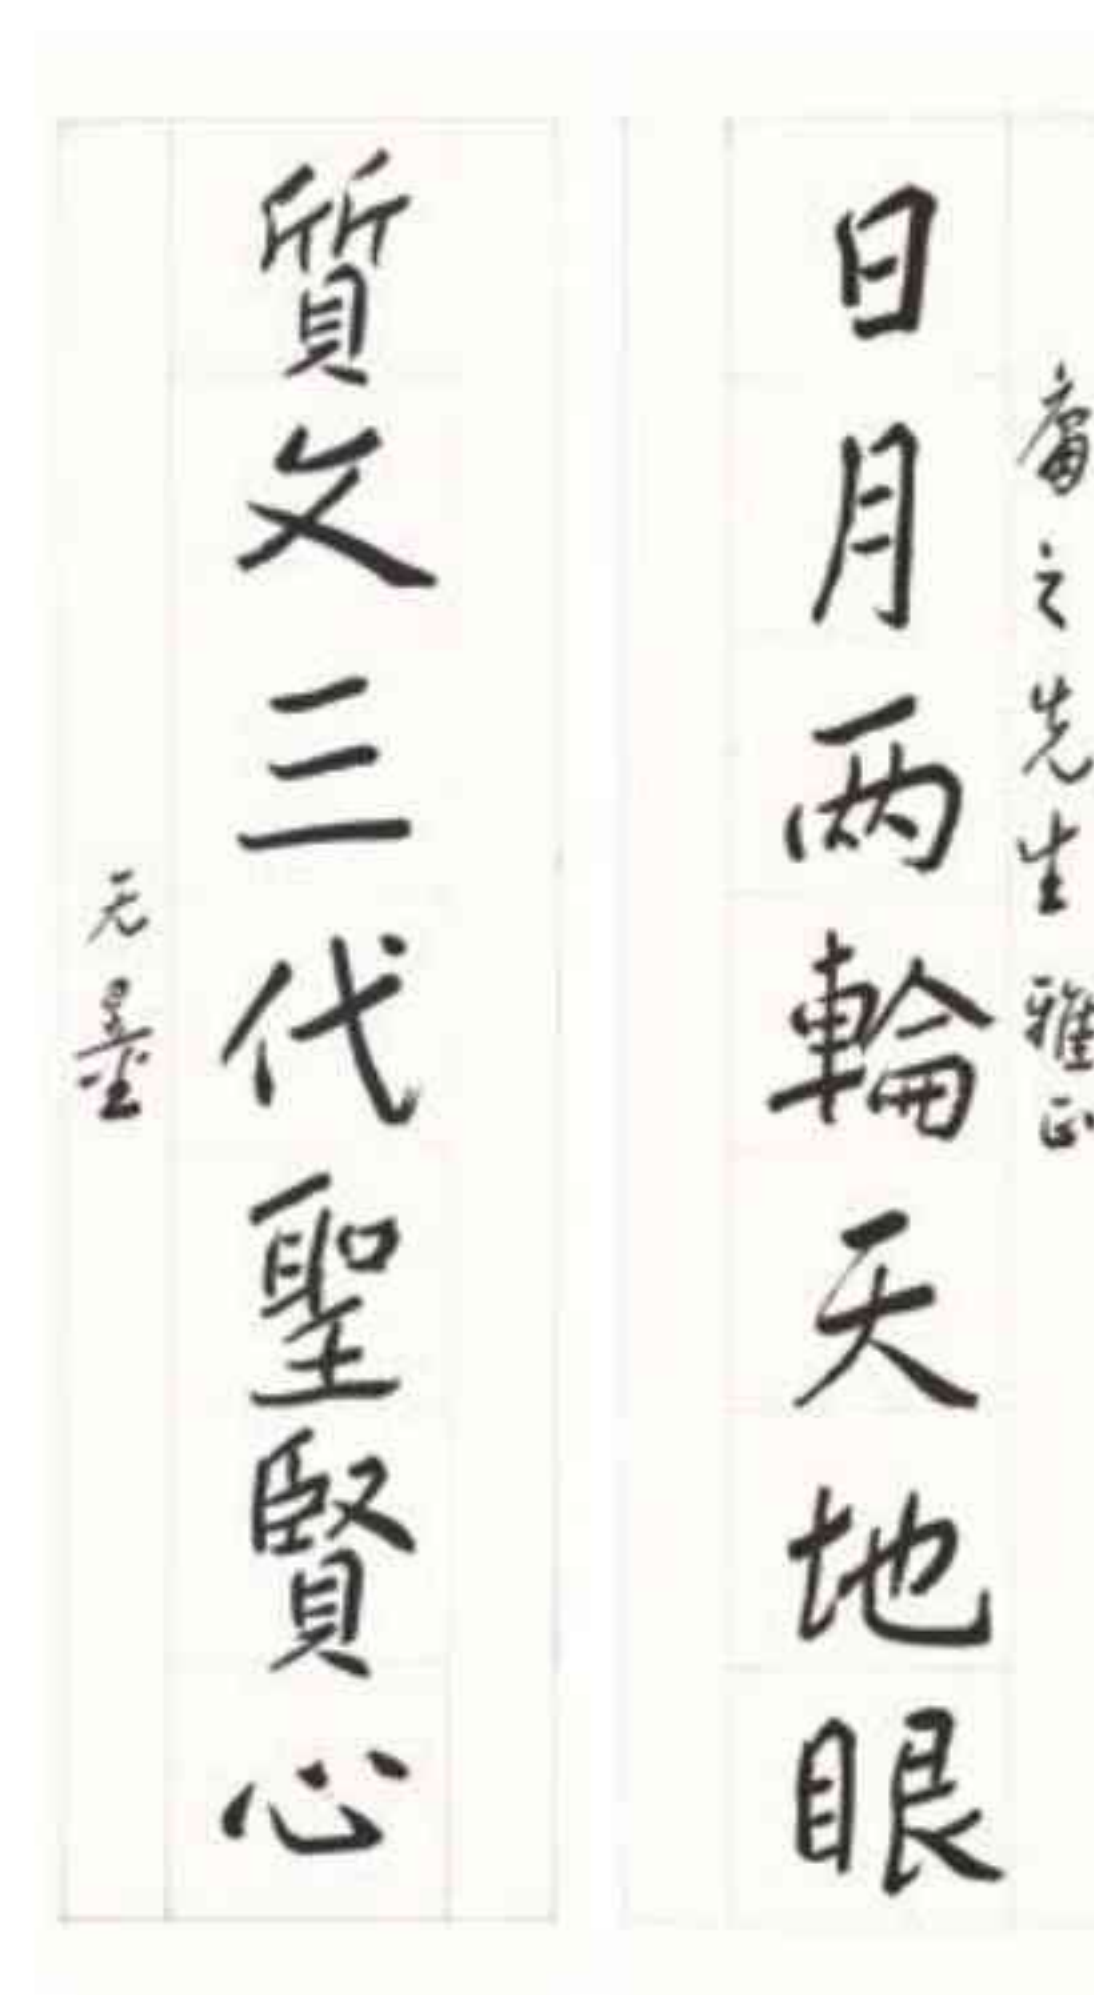 之先生雅正
日月两輪天地眼
質文三代聖賢心